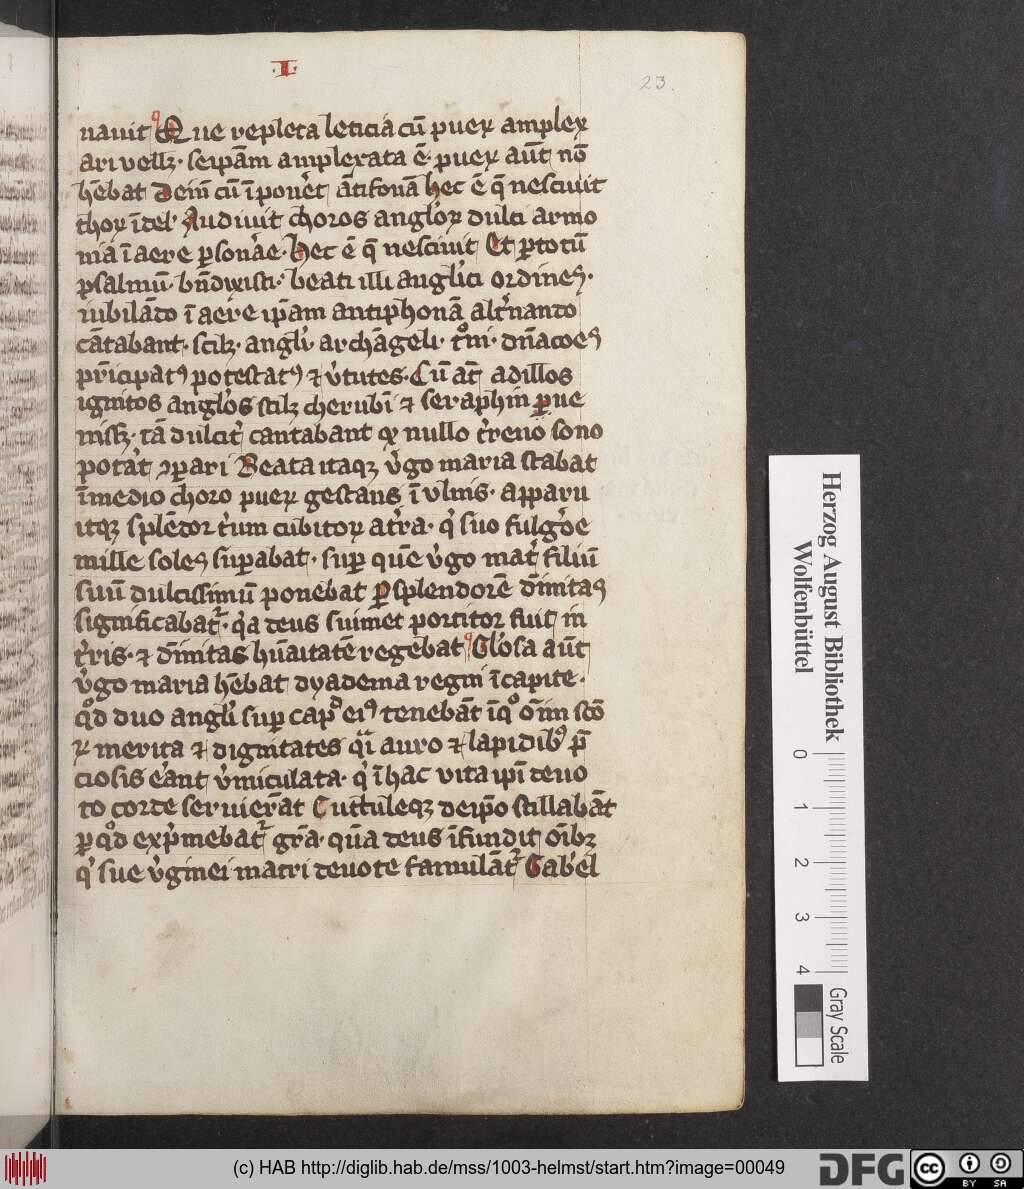 .I.
23.
nauit Que repleta leticia cū pueꝝ amplex
ari vellꝫ. seipām amplexata ē. pueꝝ aūt nō
hēbat Deīn cū īponeret ātifonā hec ē q̄ nesciuit
thoꝝ ī del' Audiuit choros angl'oꝝ dulci armo
nia ī aere ꝑsonare. Hec ē q̄ nesciuit Et ꝑ totū
psalmū. bn̄dixisti. beati illi angl'ici ordines.
iubilādo ī aere ip̄am antiphonā alt'nando
cātabant. scilꝫ. angl'i. archāgeli. t'oni. dn̄acoēs
pr̄icipatꝰ potestatꝰ ⁊ v'tutes. Cū at̄ ad illos
ignitos angl'os scilꝫ cherubī ⁊ seraphin ꝑue
nissꝫ. tā dulcit' cantabant qꝫ nullo t'reno sono
potāt ꝯꝑari Beata itaqꝫ v'go maria stabat
ī medio choro pueꝝ gestans ī vlnis. apparu
itqꝫ splēdor t'ium cubitoꝝ a t'ra. q' suo fulgore
mille soles suꝑabat. suꝑ quē v'go mat' filiū
suū dulcissimū ponebat ꝑ splendorē d'initas
significabat'. q'a deus suimet portitor fuit in
t'ris. ⁊ d'initas hūaitatē regebat Gl'osa aūt
v'go maria hēbat dyadema regni ī capite.
qd' duo angl'i suꝑ capd' eiꝰ tenebāt ī q° om̄n sc̄o
ꝝ merita ⁊ dignitates q'i auro ⁊ lapidibꝰ p̄
ciosis erant v'miculata. q' ī hac vita ip̄i deuo
to corde seruierāt Guttuleqꝫ de ip̄o stillabāt
ꝑ qd' exp'mebat' gr̄a. quā deus īfundit om̄ibꝫ
q' sue v'ginei matri deuote famulāt' Gab'el
Herzog August Bibliothek
Wolfenbüttel
0 1 2 3 4
Gray Scale
(c) HAB http://diglib.hab.de/mss/1003-helmst/start.htm?image=00049
DFG
cc BY SA